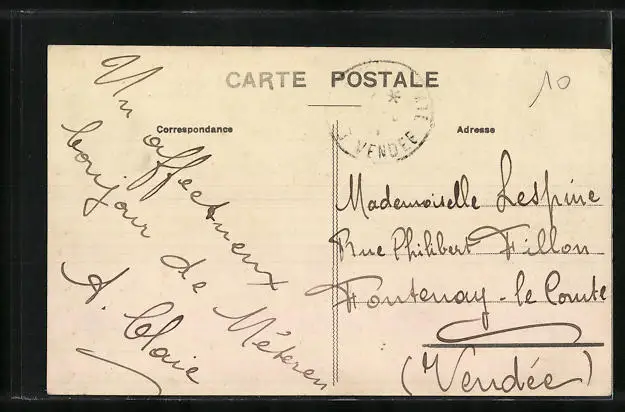 CARTE POSTALE
10
Correspondance
Adresse
VENDÉE
Un
affectueux
bonjour de Méteren
A.
Mademoiselle Lespine
Rue Philibert Fillon
Fontenay-le Comte
(Vendée)